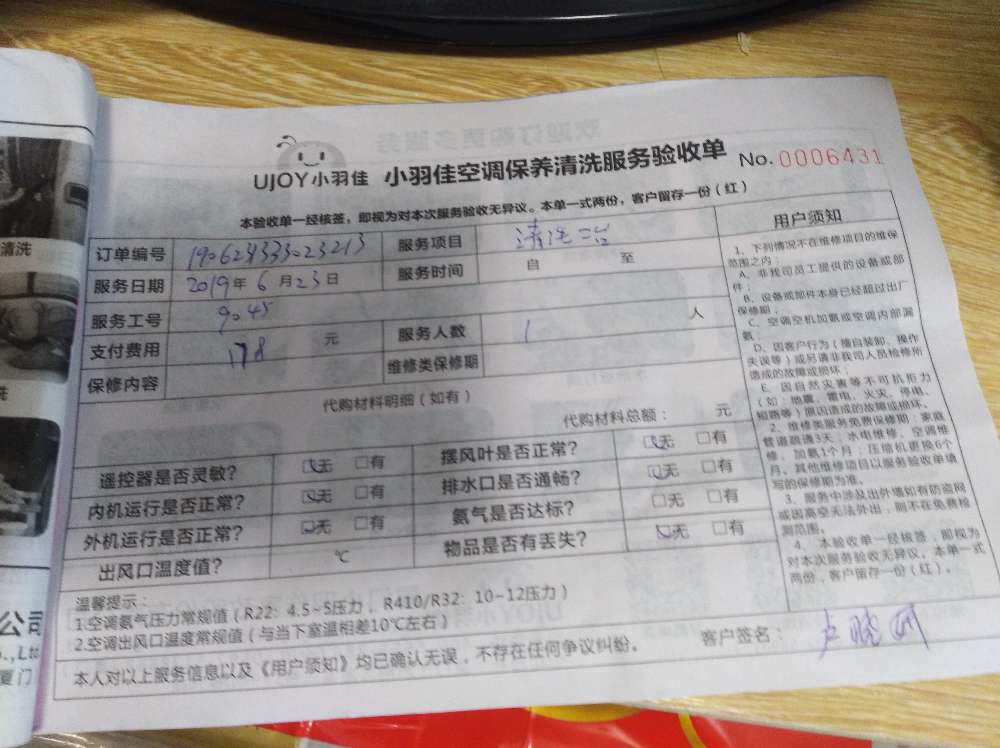 UJOY小羽佳 小羽佳空调保养清洗服务验收单 No.0006431
本验收单一经核签，即视为对本次服务验收无异议。本单一式两份，客户留存一份（红）
订单编号 服务项目 清洗一台
服务日期 2019年6月23日 服务时间 自 至
服务工号 9045
支付费用 178 元 服务人数 1 人
保修内容 维修类保修期
代购材料明细（如有）
代购材料总额： 元
遥控器是否灵敏？ □无 □有 摆风叶是否正常？ □无 □有
内机运行是否正常？ □无 □有 排水口是否通畅？ □无 □有
外机运行是否正常？ □无 □有 氨气是否达标？ □无 □有
出风口温度值？ ℃ 物品是否有丢失？ □无 □有
温馨提示：
1.空调氨气压力常规值（R22：4.5~5压力，R410/R32：10-12压力）
2.空调出风口温度常规值（与当下室温相差10℃左右）
本人对以上服务信息以及《用户须知》均已确认无误，不存在任何争议纠纷。
客户签名：
用户须知
1、下列情况不在维修项目的维保
范围之内：
A、非我司员工提供的设备或部
件；
B、设备或部件本身已经超过出厂
保修期；
C、空调空机加氨或空调内部漏
氨；
D、因客户行为（擅自装卸、操作
失误等）或另请非我司人员检修所
造成的故障或损坏；
E、因自然灾害等不可抗拒力
（如：地震、雷电、火灾、停电、
短路等）原因造成的故障或损坏。
2、维修类服务免费保修期：家庭
管道疏通3天；水电维修、空调维
修、加氨1个月；压缩机更换6个
月。其他维修项目以服务验收单填
写的保修期为准。
3、服务中涉及出外墙如有防盗网
或因高空无法外出，则不在免费检
测范围。
4、本验收单一经核签，即视为
对本次服务验收无异议。本单一式
两份，客户留存一份（红）。
清洗
洗
公司
.,Ltd
厦门